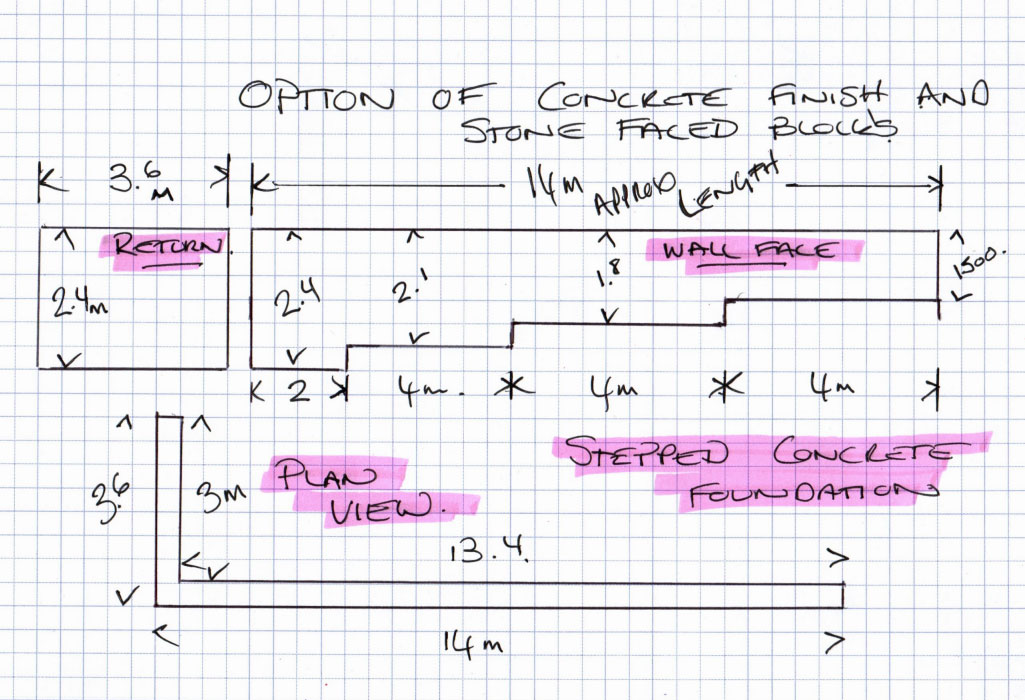 OPTION OF CONCRETE FINISH AND
STONE FACED BLOCKS
3.6 M
14m APPROX LENGTH
RETURN.
WALL FACE
2.4m
2.4
2.1
1.8
1500.
2
4m.
4m
4m
3.6
3m
PLAN
VIEW.
STEPPED CONCRETE
FOUNDATION
13.4.
14m